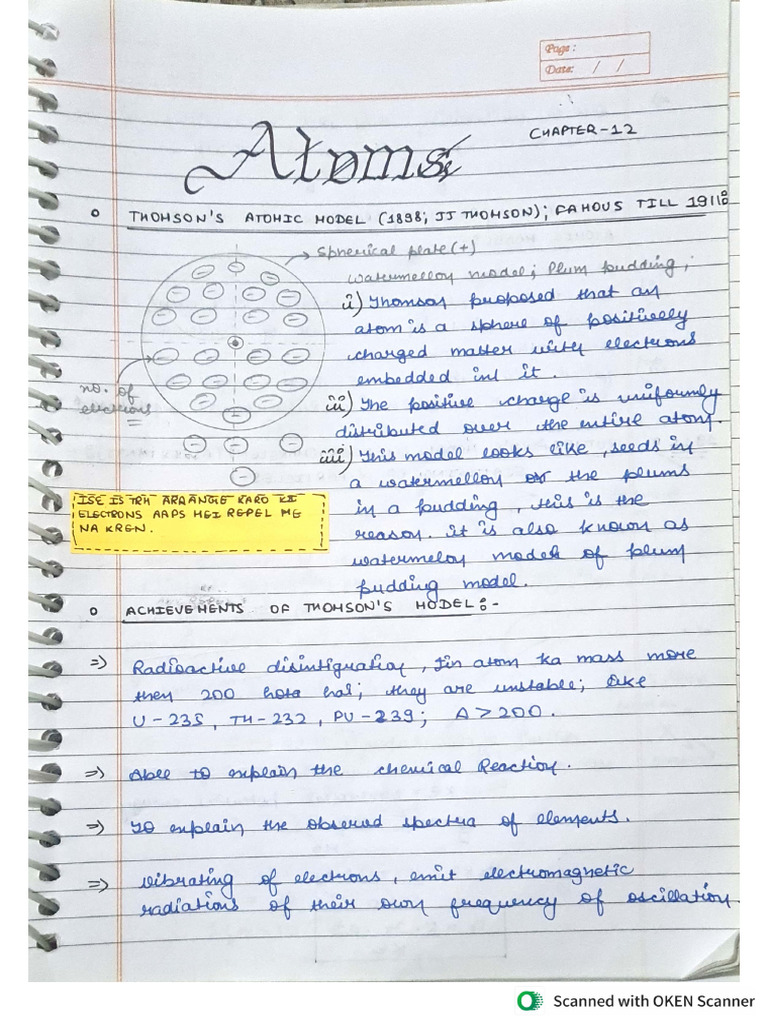 Page :
Date: / /
CHAPTER-12
Atoms
o THOMSON'S ATOMIC MODEL (1898; JJ THOMSON); FAMOUS TILL 1911:
Spherical plate (+)
watermelloy model; Plum pudding;
i) Thomson proposed that an
atom is a sphere of positively
charged matter with electrons
embedded int it.
ii) The positive charge is uniformly
distributed over the entire atom.
iii) This model looks like, seeds in
a watermelloy or the plums
in a pudding, this is the
reason. it is also known as
watermeloy model of plum
pudding model.
no. of
electrons
ISE IS TRH ARRANGE KARO KI
ELECTRONS AAPS MEI REPEL ME
NA KREN.
o ACHIEVEMENTS OF THOMSON'S MODEL:-
=) Radioactive disintigration, Jin atom ka mass more
then 200 hota hai; they are unstable; like
U-235, TH-232, PU-239; A>200.
=) Able to explain the chemical Reaction.
=) To explain the observed spectra of elements.
=) vibrating of electrons, emit electromagnetic
radiations of their own frequency of oscillation.
Scanned with OKEN Scanner